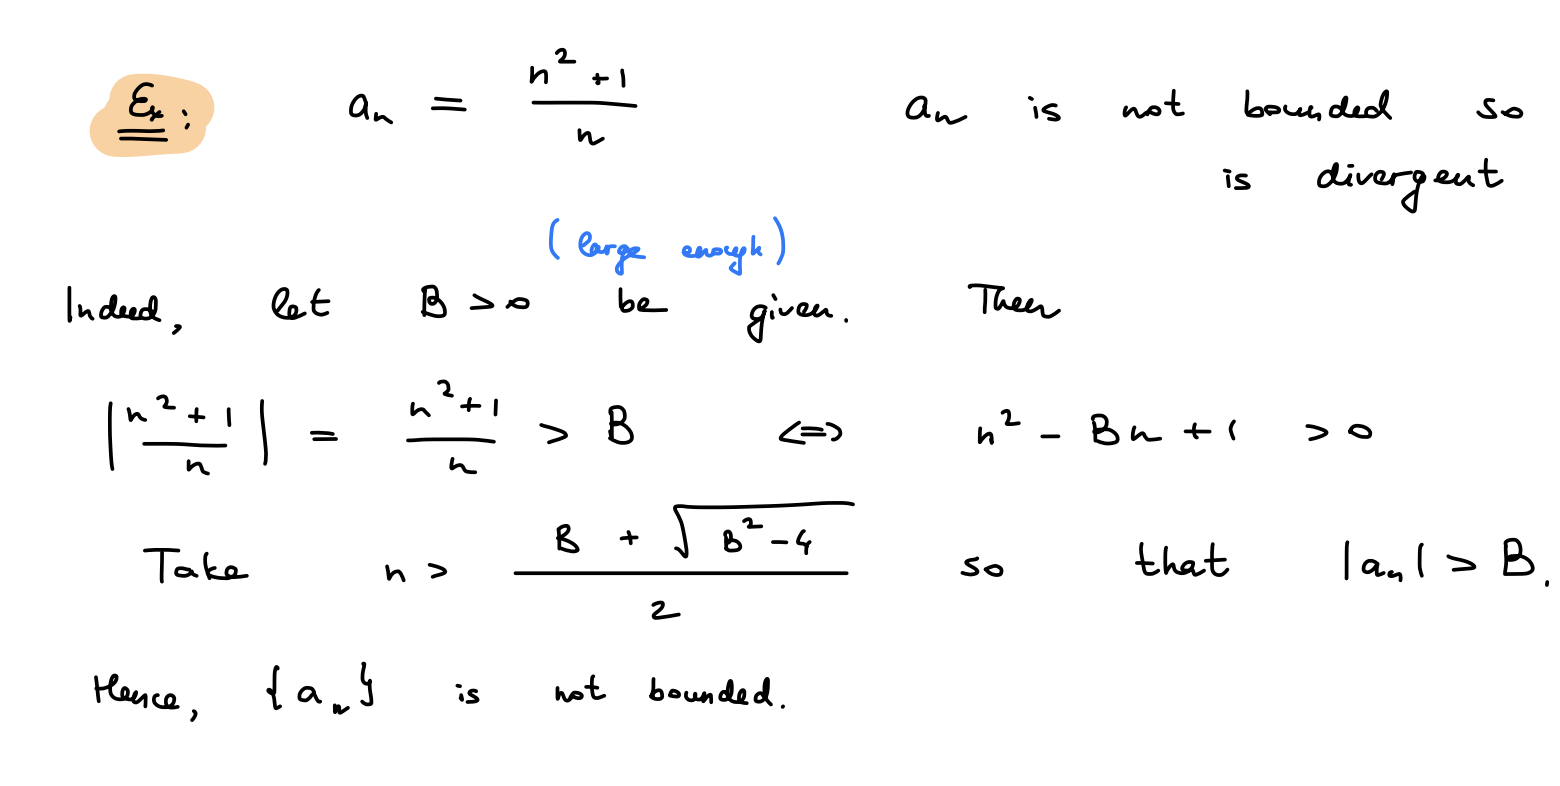 Ex: aₙ = (n² + 1)/n aₙ is not bounded so
is divergent
(large enough)
Indeed, let B > 0 be given. Then
|(n² + 1)/n| = (n² + 1)/n > B <=> n² - Bn + 1 > 0
Take n > (B + √(B² - 4))/2 so that |aₙ| > B.
Hence, {aₙ} is not bounded.